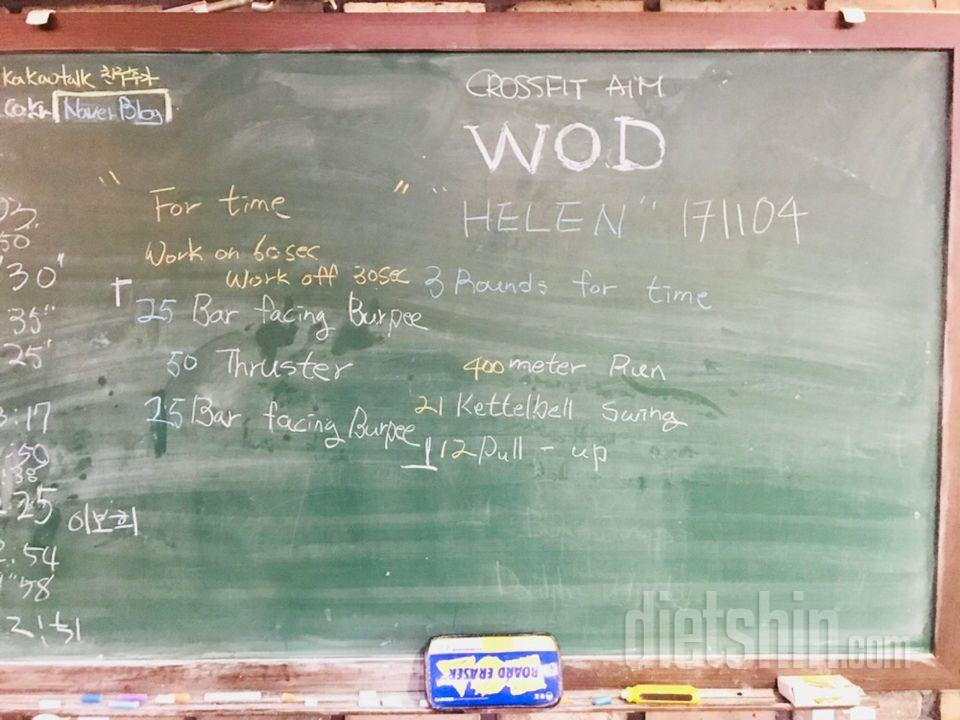 Kakaotalk 친구추가
Naver Blog
CROSSFIT AIM
WOD
" "
For time
Work on 60sec
Work off 30sec
25 Bar facing Burpee
50 Thruster
25 Bar facing Burpee
"HELEN" 171104
3 Rounds for time
400 meter Run
21 Kettelbell Swing
12 Pull-up
50
30"
35"
25'
:17
:50
:38
25 이보희
:54
58
BOARD ERASER
dietshin.com